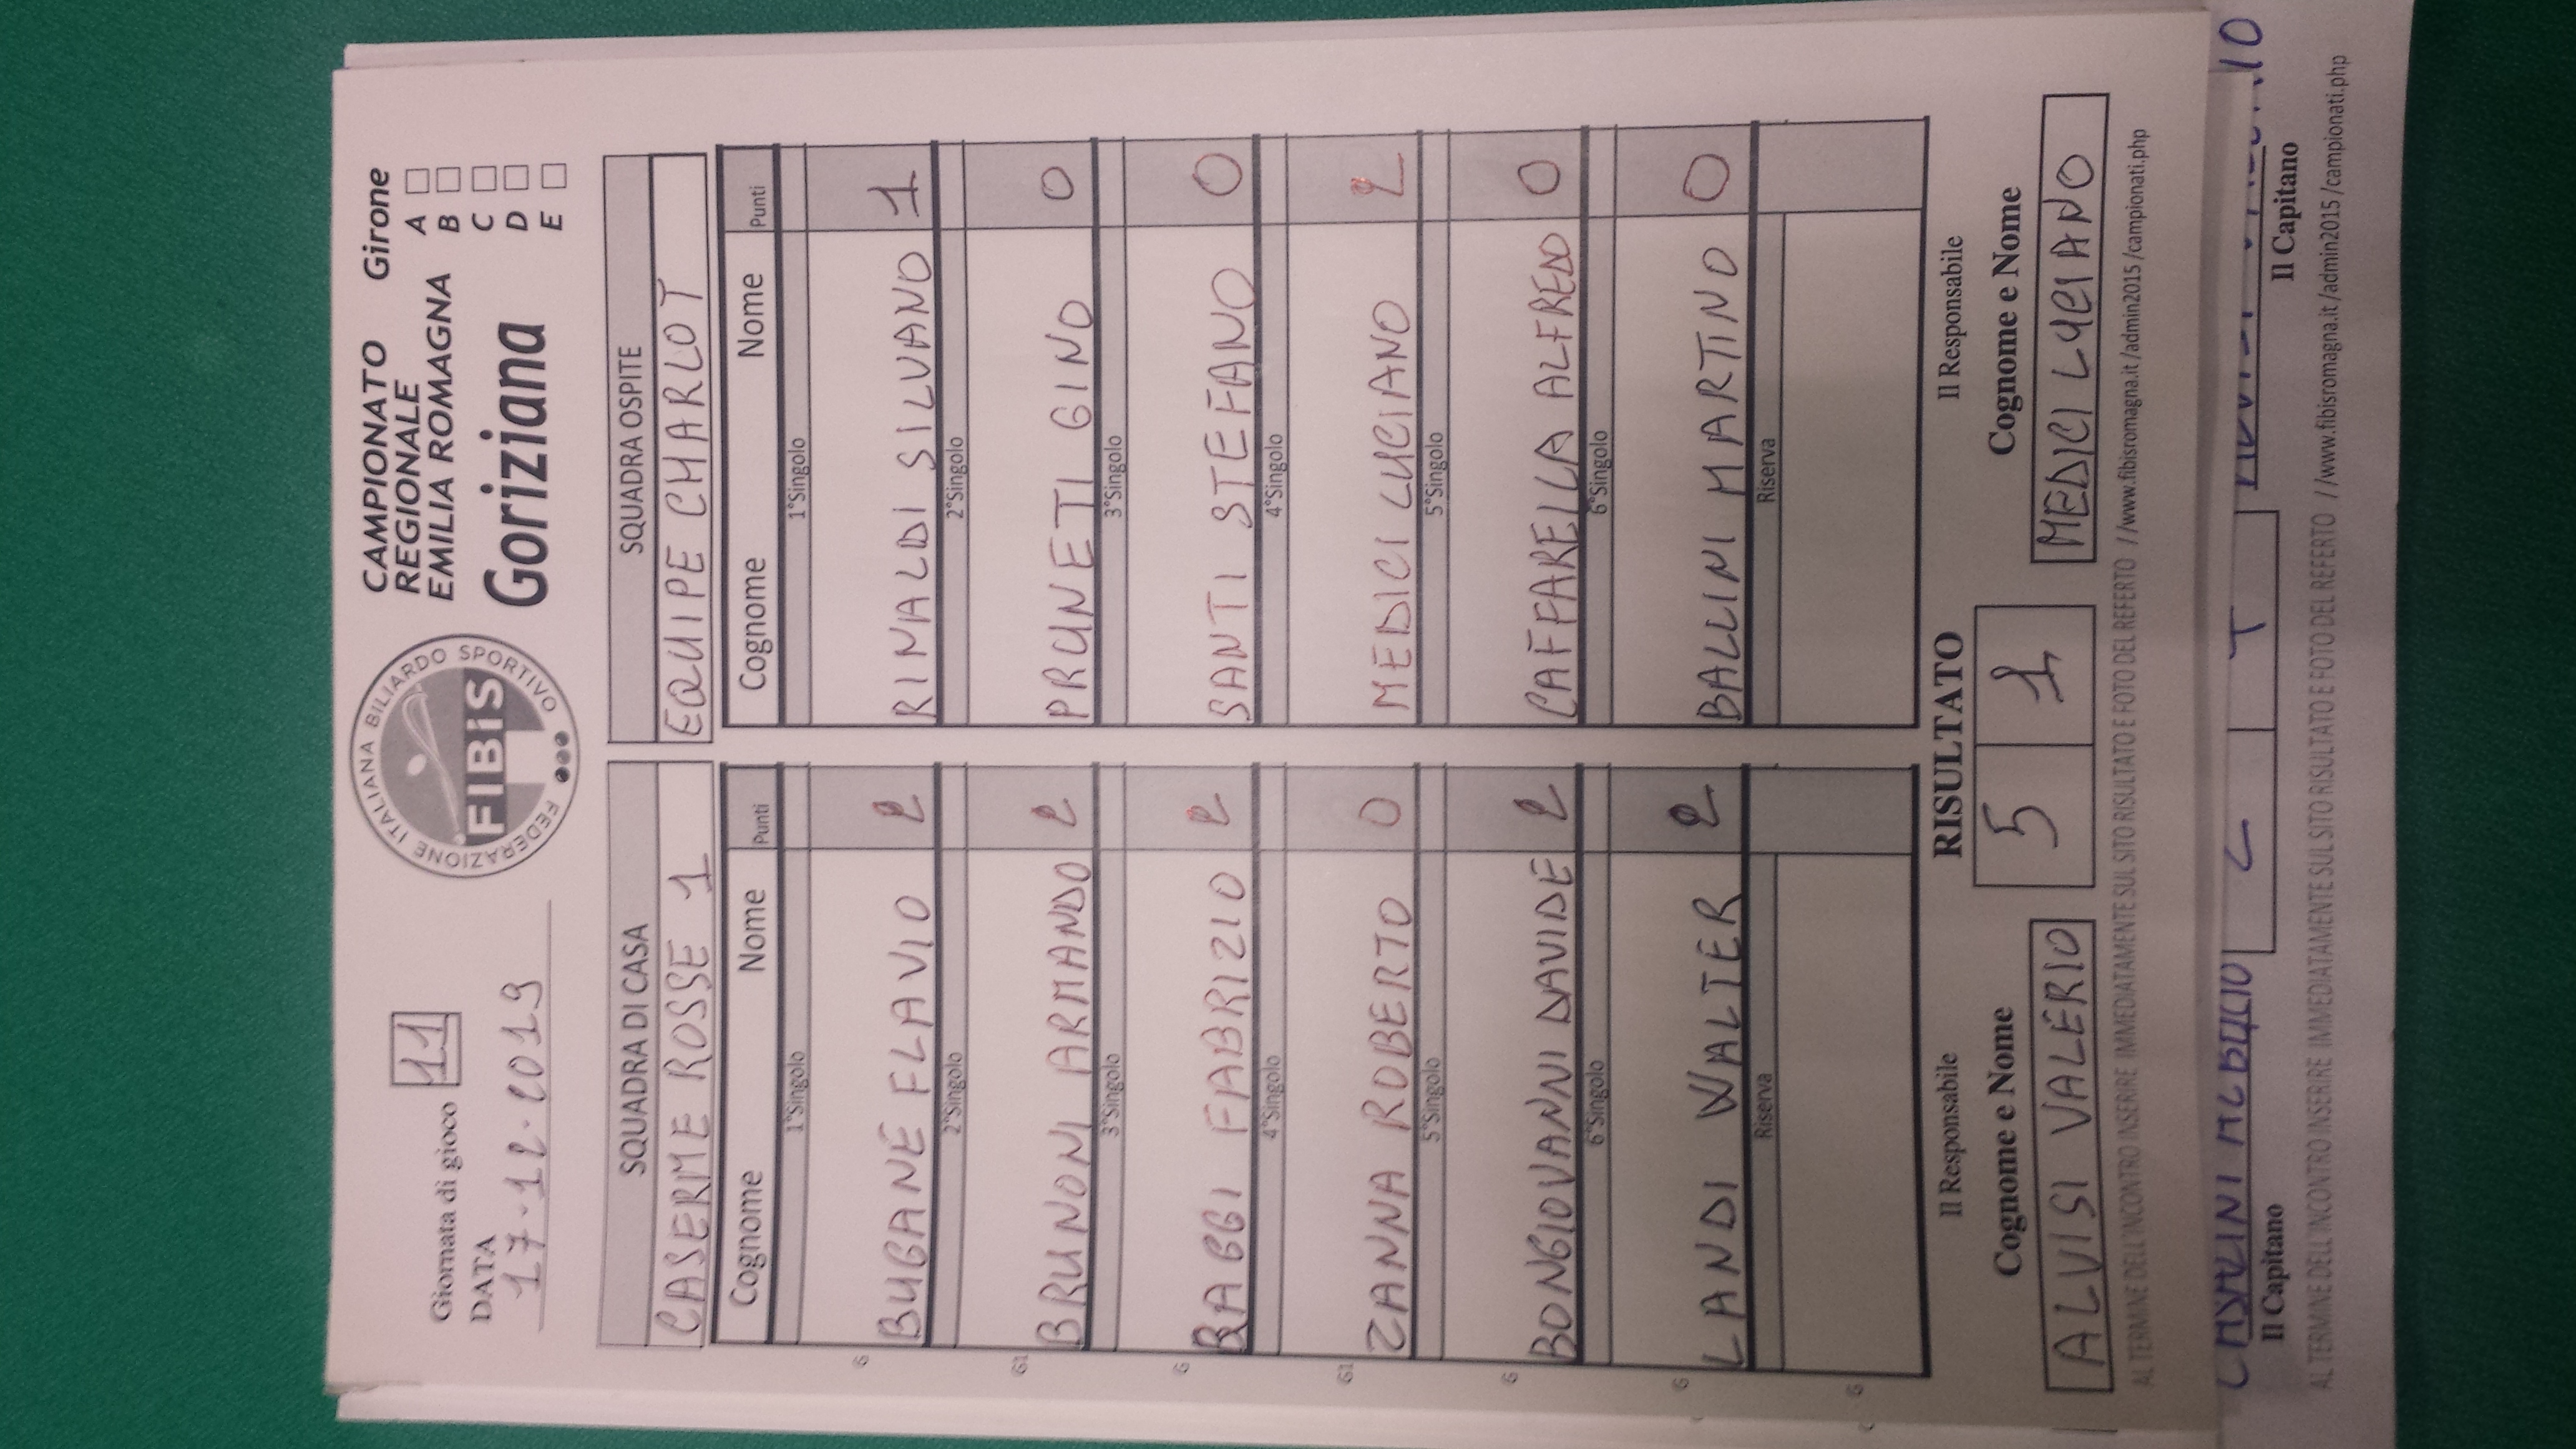 Giornata di gioco 11
DATA
17-12-2019
FEDERAZIONE ITALIANA BILIARDO SPORTIVO
FIBiS
CAMPIONATO
REGIONALE
EMILIA ROMAGNA
Goriziana
Girone
A
B
C
D
E
SQUADRA DI CASA SQUADRA OSPITE
CASERME ROSSE 1 EQUIPE CHARLOT
Cognome Nome Punti Cognome Nome Punti
1°Singolo 1°Singolo
G BUGANÉ FLAVIO 2 RINALDI SILVANO 1
2°Singolo 2°Singolo
G1 BRUNONI ARMANDO 2 PRUNETI GINO 0
3°Singolo 3°Singolo
G BAGGI FABRIZIO 2 SANTI STEFANO 0
4°Singolo 4°Singolo
G1 ZANNA ROBERTO 0 MEDICI LUCIANO 2
5°Singolo 5°Singolo
G BONGIOVANNI DAVIDE 2 CAFFARELLA ALFREDO 0
6°Singolo 6°Singolo
G LANDI WALTER 2 BALLINI MARTINO 0
Riserva Riserva
G
Il Responsabile RISULTATO Il Responsabile
Cognome e Nome 5 1 Cognome e Nome
ALVISI VALERIO MEDICI LUCIANO
AL TERMINE DELL'INCONTRO INSERIRE IMMEDIATAMENTE SUL SITO RISULTATO E FOTO DEL REFERTO //www.fibisromagna.it/admin2015/campionati.php
Il Capitano Il Capitano
AL TERMINE DELL'INCONTRO INSERIRE IMMEDIATAMENTE SUL SITO RISULTATO E FOTO DEL REFERTO //www.fibisromagna.it/admin2015/campionati.php